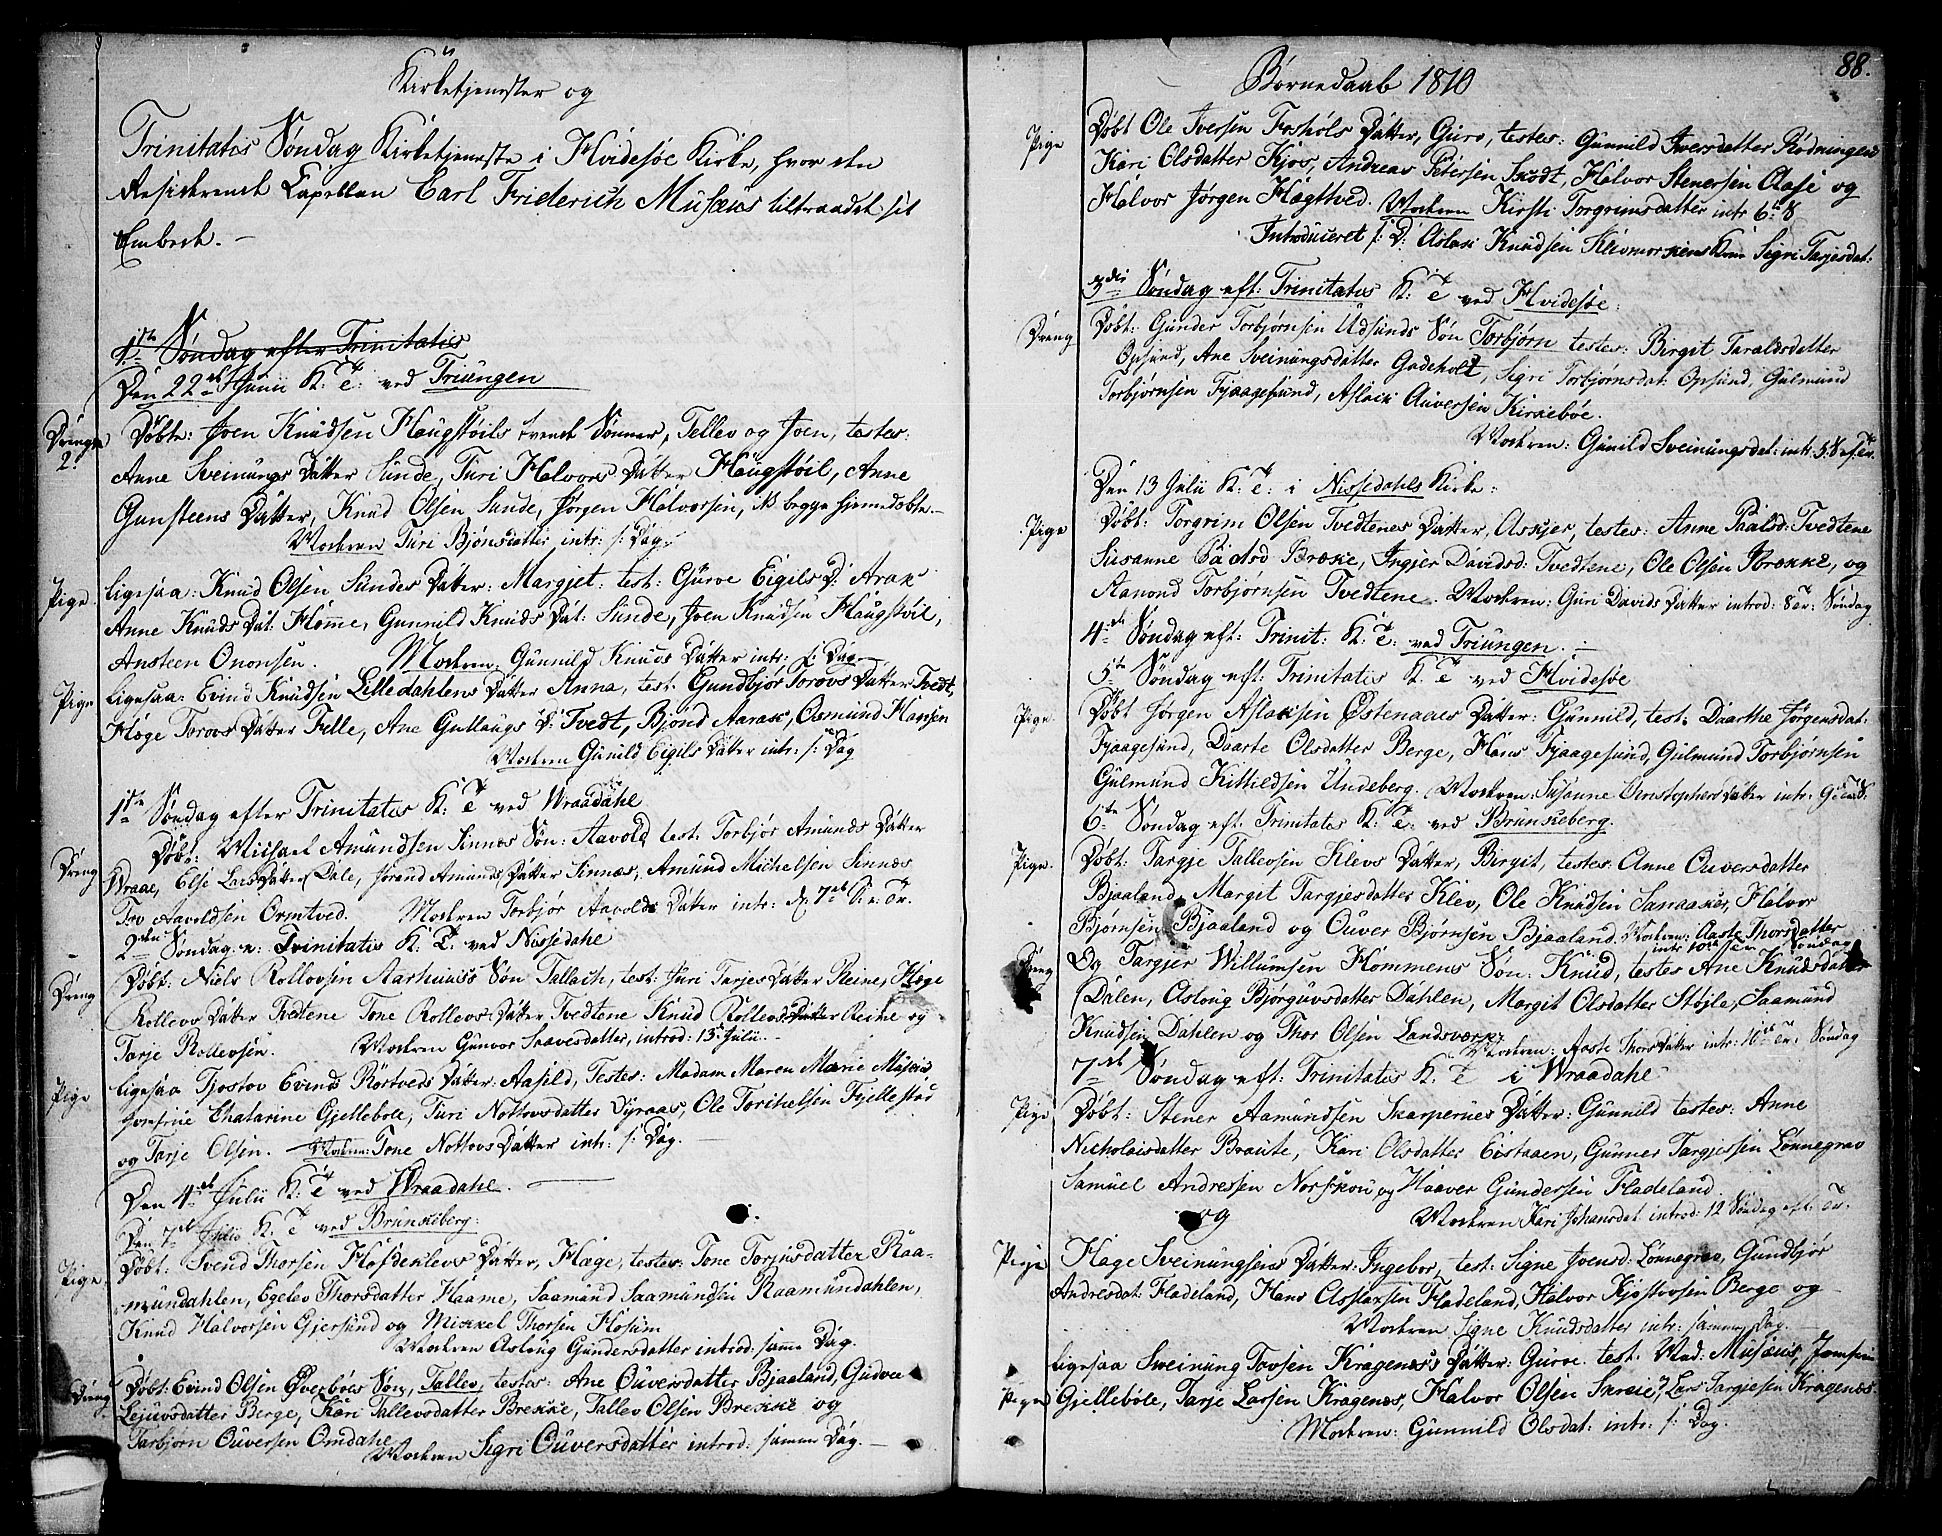 Kirketjenester og
Trinitatis Søndag Kirketjeneste i Hvidesøe Kirke, hvor den
Residerende Capellan Carl Friderich Musæus tiltraadte sit
Embede. —
1ste Søndag efter Trinitatis
Den 22de Junii K: T: ved Triungen
Drenge Døbt: Joen Knudsen Haugstøils tvende Sønner, Tellev og Joen, testes:
2. Anne Sveinungs Datter Sunde, Turi Halvors Datter Haugstøil, Anne
Gunsteens Datter, Knud Olsen Sunde, Jørgen Halvorsen, NB begge hjemedøbte —
Modren Turi Bjønsdatter intr: s: Dag
Pige. ligesaa: Knud Olsen Sundes Datter: Margjet. test: Gurve Eigils D: Arak
Anne Knuds Dat: Homme, Gunnild Knuds Dat: Sunde, Joen Knudsen Haugstøil,
Ansteen Ononsen. Modren: Gunnild Knuds Datter intr: s: Dag
Pige ligesaa: Evind Knudsen Lilledahlens Datter Anna, test: Gundbjør Torovs Datter Tvedt,
Høge Torovs Datter Felle, Ane Gullaugs D: Tvedt, Bjond Aarak, Osmund Hansen
Modren Gunild Eigils Datter intr: s: Dag
1ste Søndag efter Trinitatis K: T: ved Wraadahl
Dreng Døbt: Michael Amundsen Sinnæs Søn: Aavold test: Torbjør Amunds Datter
Wraae, Else Lars Datter Dale, Jorand Amunds Datter Sinnæs, Amund Michelsen Sinnæs
Tov Aavoldsen Ormtved. Modren Torbjør Aavolds Datter intr: d. 7de S: e: Tr.
2den Søndag e: Trinitatis K: T: ved Nissedahl
Dreng Døbt: Niels Rollevsen Aarhuuss Søn Tallach, test: Juri Tarjes Datter Reine, Høge
Rollevs Datter Tvedtene Tone Rollevs Datter Tvedtene Knud Rollevs Datter Reine og
Tarje Rollevsen. Modren Gunvor Saavesdatter, introd: 13de Julii.
Pige ligesaa Tjostov Evinds Rørtveds Datter: Aasild, Testes: Madam Maren Marie Musæus
Jomfrue Chatarine Gjellebole, Turi Nottovsdatter Dyraas, Ole Torkelsen Fjellestad
og Tarje Olsen. Modren: Tone Nottovs Datter intr: s: Dag. —
Den 4de Julii K: T: ved Wraadahl.
Den 7de Julii K: T: ved Brunkeberg:
Pige. Døbt: Svend Thorsen Hofdeklevs Datter, Hæge, testes: Tone Torjusdatter Raa-
mundahlen, Egelev Thorsdatter Haame, Saamund Saamundsen Raamundahlen,
Knud Halvorsen Gjersund og Mickel Thorsen Flosum
Modren Aslaug Gundersdatter introd: samme Dag.
Dreng Døbt: Evind Olsen Øverbøes Søn, Tallev, testes: Ane Ouversdatter Bjaaland, Gudve
Lejuvsdatter Berge, Kari Tallevsdatter Brekke, Tallev Olsen Brekke og
Tarbjørn Ouversen Omdahl
Modren Sigri Ouversdatter introd: samme Dag. —
Børnedaab 1810
88.
Pige Døbt Ole Iversen Foshols Datter, Guro, testes: Gunnild Iversdatter Rødningen
Kari Olsdatter Kjos, Andreas Petersen Skodt, Halvor Stenersen Aase og
Halvor Jørgen Hægtved. Modren Kirsti Torgrimsdatter intr 6te S
Introduceret s: D: Aslak Knudsen Kleivmorkens Kone Sigri Tarjesdat:
3die Søndag eft: Trinitatis K: T: ved Hvidesøe:
Dreng Døbt: Gunder Torbjørnsen Udsunds Søn Torbjørn testes: Birgit Taraldsdatter
Opsund, Ane Sveinungsdatter Gadeholt, Sigri Torbjørnsdat: Opsund, Gulmund
Torbjørnsen Fjaagesund, Aslack Auversen Kirkebøe.
Modren: Gunild Sveinungsdat: intr: 5 S ef. Tr.
Den 13 Julii K: T: i Nissedahls Kirke:
Pige Døbt: Torgrim Olsen Tvedtenes Datter, Askjer, testes: Anne Paalsd: Tvedtene
Susanne Brække, Ingjer Davidsd: Tvedtene, Ole Olsen Brekke, og
Aanond Torbjørnsen Tvedtene. Modren: Guri Davids Datter introd: 8 Tr: Søndag
4de Søndag eft: Trinit: K: T: ved Triungen. —
5te Søndag eft: Trinitatis K: T: ved Hvidesøe
Pige. Døbt Jørgen Aslaksen Østenaaes Datter: Gunnild, test: Daarthe Jørgensdat:
Fjaagesund, Daarte Olsdatter Berge, Hans Fjaagesund, Gulmund Torbjørnsen
Gulmund Kittildsen Undeberg. Modren: Susanne Christophers Datter intr: 9
6te Søndag eft: Trinitatis K: T: ved Brunkeberg.
Pige. Døbt: Targje Tallevsen Klevs Datter, Birgit, testes: Anne Ouversdatter
Bjaaland, Margit Targjesdatter Klev, Ole Knudsen Sanaaker, Halvor
Bjørnsen Bjaaland og Ouver Bjørnsen Bjaaland. Modren: Aaste Thorsdatter
intr: 10de Søndag
Dreng Og Targjer Willumsen Hommens Søn: Knud, testes Ane Knudsdatter
Dalen, Aslong Bjørguvsdatter Dahlen, Margit Olsdatter Støjle, Saamund
Knudsen Dahlen og Thor Olsen Landsværk
Modren: Aaste Thors Datter intr: 10de Tr: Søndag
7de Søndag eft: Trinitatis K: T: i Wraadahl:
Pige Døbt: Stener Aamundsen Skarpenes Datter: Gunnild testes: Anne
Nicholaisdatter Braute, Kari Olsdatter Eistaaen, Gunner Targjessen Lønnegrav
Samuel Andressen Norskou og Haaver Gundersen Fladeland.
og Modren Kari Johansdat introd: 12 Søndag eft: Tr.
Pige Hage Sveinungsens Datter: Ingebor, test: Signe Joensd: Lønnegrav, Gundbjør
Andresdat Fladeland, Hans Asslaksen Fladeland, Halvor Kjøstovsen Berge og
Modren Signe Knudsdatter intr: samme Dag.
ligesaa Sveinung Tovsen Kragenæs's Datter: Gurve. test: Mad: Musæus, Jomfrue
Pige Gjellebøle, Tarje Larsen Kragenæs, Halvor Olsen, Lars Targjesen Kragenæs
Modren: Gunnild Olsdat: intr: s: Dag.